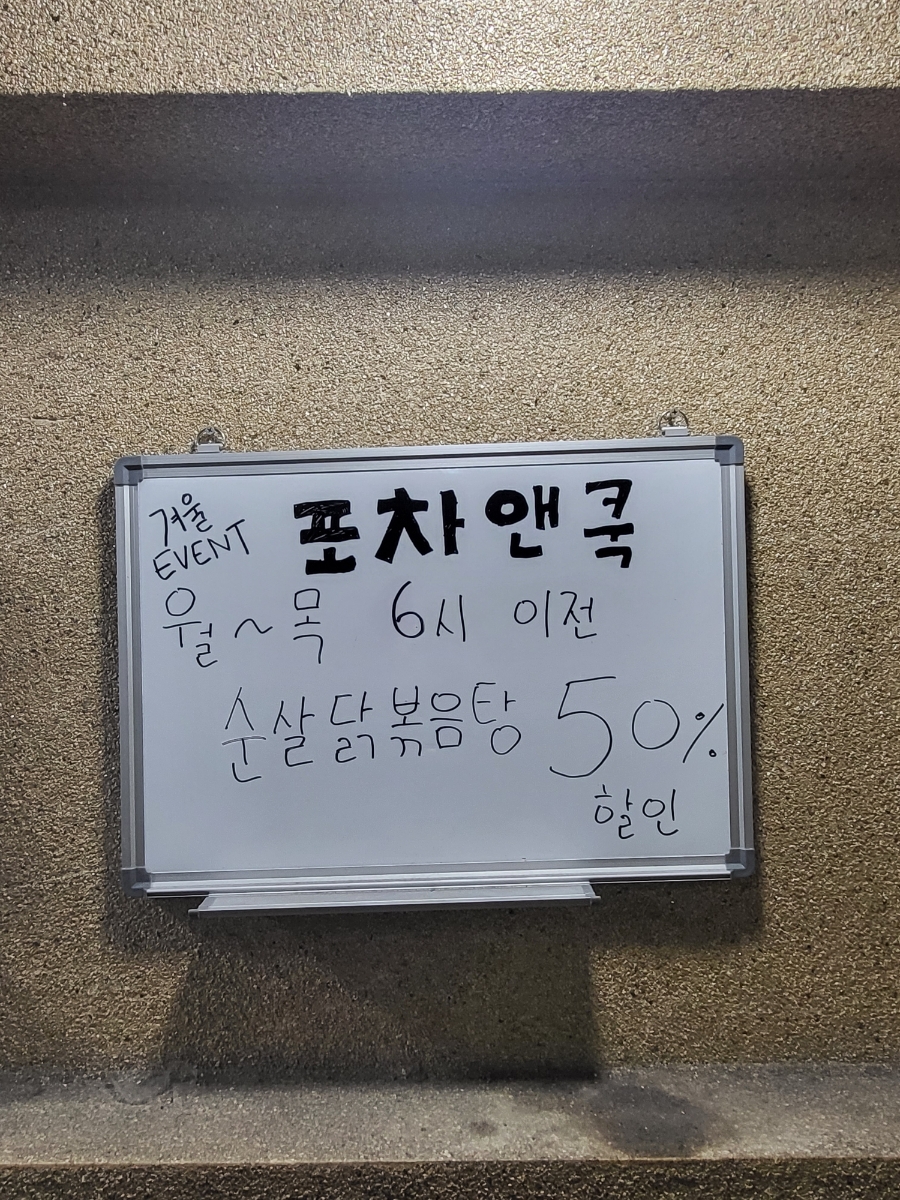 겨울
EVENT
포차앤쿡
월~목 6시 이전
순살닭볶음탕 50%
할인